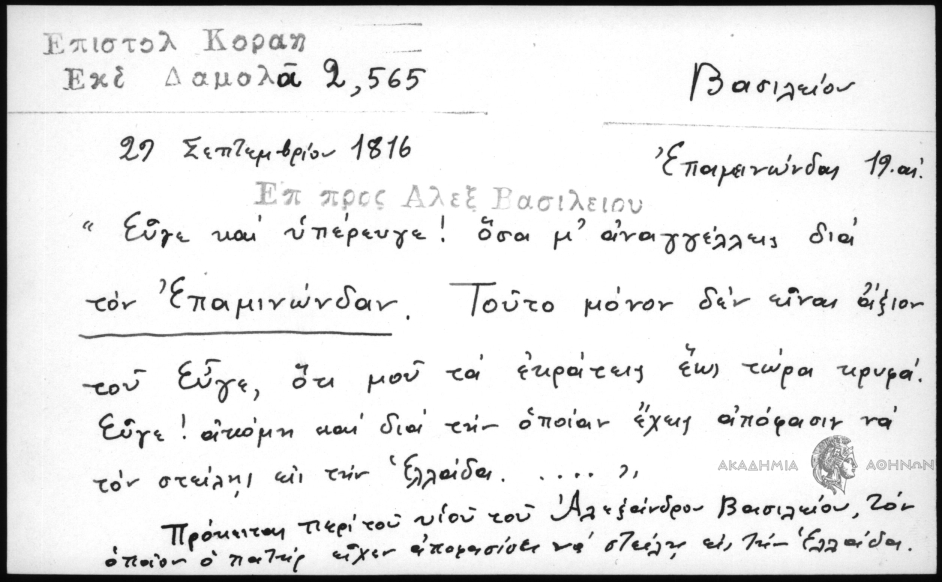 Επιστολ Κοραη
Εκδ Δαμολᾶ 2,565
Βασιλείου
27 Σεπτεμβρίου 1816
Ἐπαμεινώνδας 19. αἰ.
Επ προς Αλεξ Βασιλειου
“ Εὖγε καὶ ὑπέρευγε! ὅσα μ' ἀναγγέλλεις διὰ
τὸν Ἐπαμινώνδαν. Τοῦτο μόνον δὲν εἶναι ἄξιον
τοῦ Εὖγε, ὅτι μοῦ τὰ ἐκράτεις ἕως τώρα κρυφά.
Εὖγε! ἀκόμη καὶ διὰ τὴν ὁποίαν ἔχεις ἀπόφασιν νὰ
τὸν στείλῃς εἰς τὴν Ἑλλάδα. . . . . ”
ΑΚΑΔΗΜΙΑ ΑΘΗΝΩΝ
Πρόκειται περὶ τοῦ υἱοῦ τοῦ Ἀλεξάνδρου Βασιλείου, τὸν
ὁποῖον ὁ πατὴρ εἶχεν ἀποφασίσει νὰ στείλῃ εἰς τὴν Ἑλλάδα.